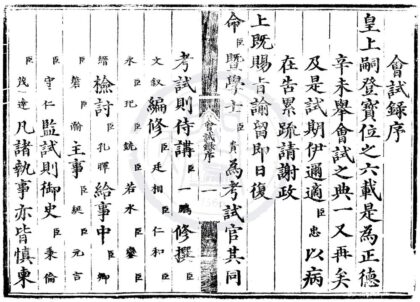 會試錄序
皇上嗣登寶位之六載是為正德
辛未舉會試之典一又再矣
及是試期伊邇適臣忠以病
在告累疏請謝政
上既賜旨諭留即日復
命臣暨學士臣貴為考試官其同
會試錄序 一
考試則侍講臣一鵬修撰
臣文叙編修臣廷相臣仁和
臣永臣玘臣銑臣若水臣
臣縉檢討臣孔暉給事中臣卿
臣磐臣瀚主事臣元吉
臣守仁監試則御史臣秉倫
臣茂達凡諸執事亦皆慎柬